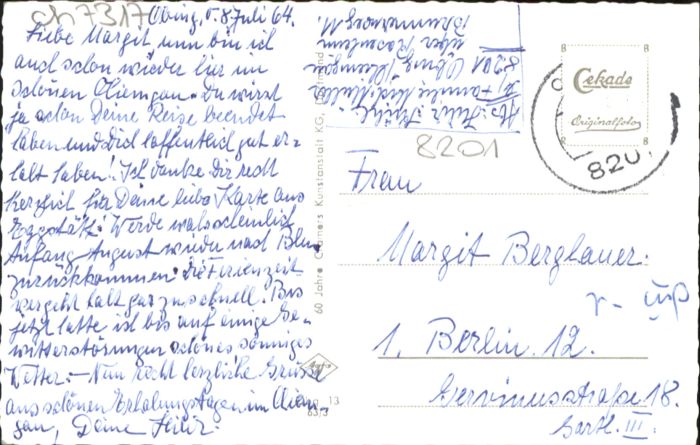 Obing, d. 8. Juli 64.
Liebe Margit nun bin ich
auch schon wieder hier im
schönen Chiemgau. Du wirst
ja schon Deine Reise beendet
haben und Dich hoffentlich gut er-
holt haben! Ich danke Dir recht
herzlich für Deine liebe Karte aus
Werde wahrscheinlich
Anfang August wieder nach
zurückkommen. Die Ferienzeit
vergeht halt gar zu schnell. Bis
jetzt hatte ich bis auf einige Ge-
witterstörungen schönes sonniges
Wetter. – Nun recht herzliche Grüsse
aus schönen Erholungstagen im Chiem-
gau, Deine
60 Jahre Cramers Kunstanstalt KG, Dortmund
8201 Obing
über Rosenheim
8201
Cekade
Originalfoto
820
Frau
Margit Berghauer.
1. Berlin. 12.
Gervinusstraße 18.
Gartl. III.